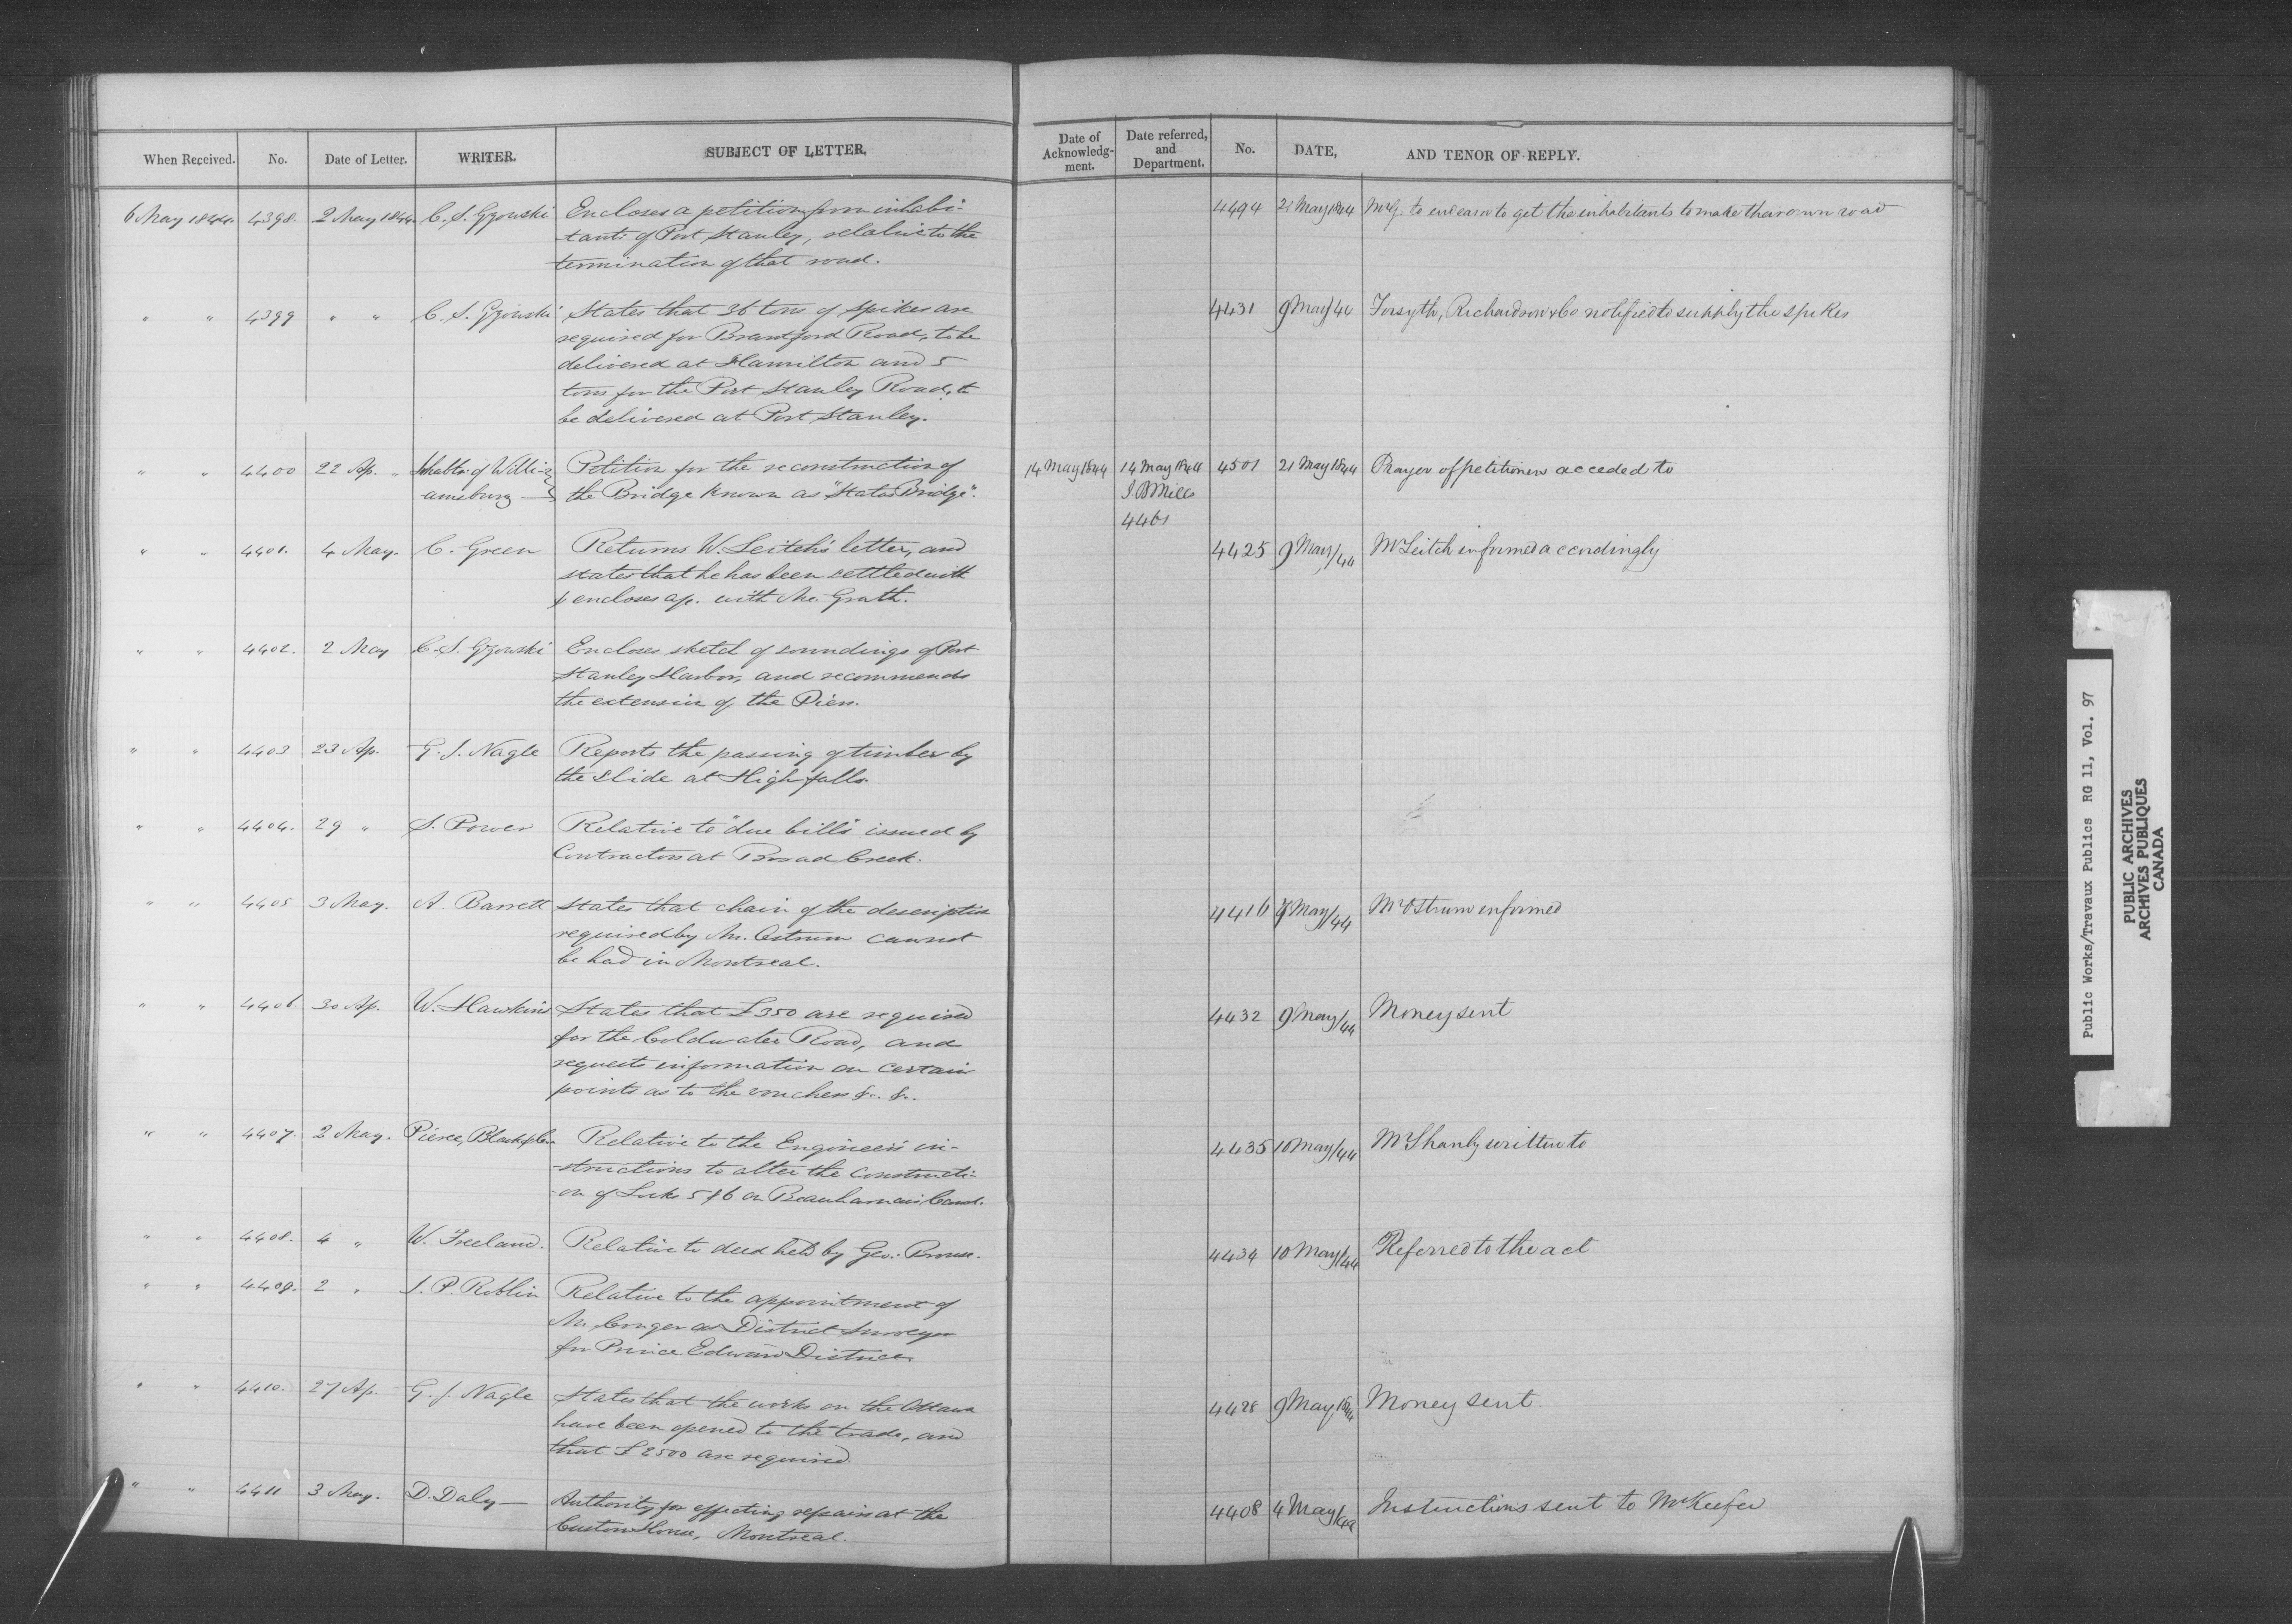 When Received.
No.
Date of Letter.
WRITER.
SUBJECT OF LETTER.
Date of
Acknowledg-
ment.
Date referred,
and
Department.
No.
DATE,
AND TENOR OF REPLY.
6 May 1844. 4398. 2 May 1844. C. S. Gzowski Encloses a petition from inhabi-
-tants of Port Stanley, relative to the
termination of that road.
4494 21 May 1844 Mr G. to endeavor to get the inhabitants to make their own road
" " 4399 " " C. S. Gzowski States that 36 tons of spikes are
required for Brantford Road, to be
delivered at Hamilton and 5
tons for the Port Stanley Road, to
be delivered at Port Stanley.
4431 9 May/44 Forsyth, Richardson & Co notified to supply the spikes
" " 4400 22 Ap. " Inhabts. of Willi-
amsburg
Petition for the reconstruction of
the Bridge known as "States Bridge".
14 May 1844 14 May 1844
J. B Mills
4461
4501 21 May 1844 Prayer of petitioners acceded to
" " 4401. 4 May. C. Green Returns W. Leitch's letter, and
states that he has been settled with
& encloses a/c. with Mc. Grath.
4425 9 May/44 Mr Leitch informed accordingly
" " 4402. 2 May C. S. Gzowski Encloses sketch of soundings of Port
Stanley Harbor, and recommends
the extension of the Piers.
" " 4403 23 Ap. G. J. Nagle Reports the passing of timber by
the slide at High falls.
" " 4404. 29 " S. Power Relative to "due bills" issued by
Contractors at Broad Creek.
" " 4405 3 May. A. Barrett States that chain of the description
required by Mr. Ostrum cannot
be had in Montreal.
4416 May/44 Mr Ostrum informed
" " 4406 30 Ap. W. Hawkins States that £350 are required
for the Coldwater Road, and
requests information on certain
points as to the vouchers &c. &c.
4432 9 May/44 Money sent
" " 4407. 2 May. Pierce, Black & Co Relative to the Engineer's in-
-structions to alter the constructi-
-on of Locks 5 & 6 on Beauharnois Canal.
4435 10 May/44 Mr Shanly written to
" " 4408. 4 " W. Freeland. Relative to deed held by Geo. Brouse.
4434 10 May/44 Referred to the act
" " 4409. 2 " J. P. Roblin Relative to the appointment of
Mr. Conger as District Surveyor
for Prince Edward District.
" " 4410. 27 Ap. G. J. Nagle States that the works on the Ottawa
have been opened to the trade, and
that £2500 are required.
4428 9 May 1844 Money sent.
" " 4411 3 May. D. Daly — Authority for effecting repairs at the
Custom House, Montreal.
4408 4 May/44 Instructions sent to Mr Keefer
Public Works/Travaux Publics RG 11, Vol. 97
PUBLIC ARCHIVES
ARCHIVES PUBLIQUES
CANADA